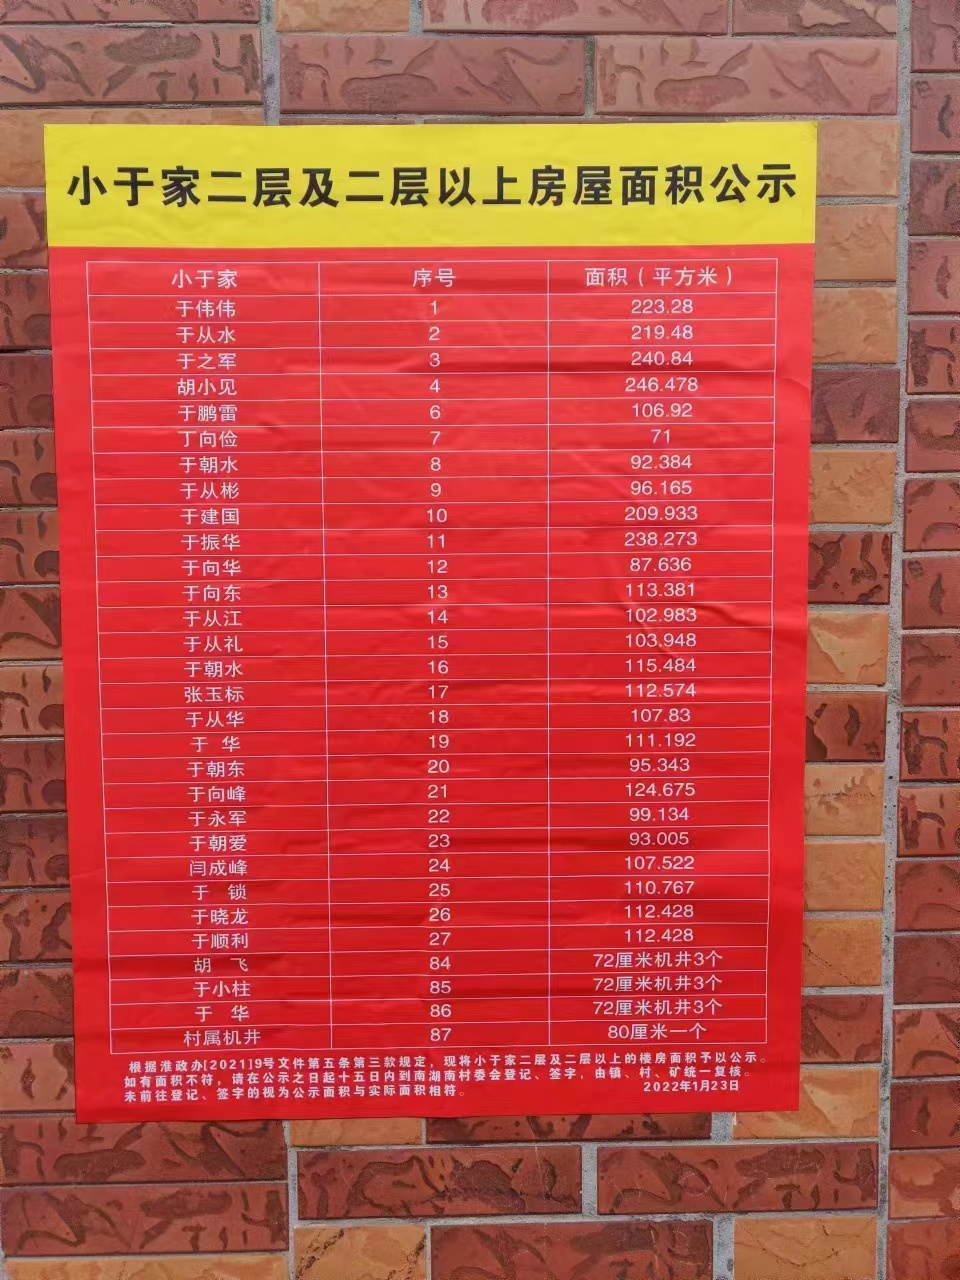 小于家二层及二层以上房屋面积公示
小于家 序号 面积（平方米）
于伟伟 1 223.28
于从水 2 219.48
于之军 3 240.84
胡小见 4 246.478
于鹏雷 6 106.92
丁向俭 7 71
于朝水 8 92.384
于从彬 9 96.165
于建国 10 209.933
于振华 11 238.273
于向华 12 87.636
于向东 13 113.381
于从江 14 102.983
于从礼 15 103.948
于朝水 16 115.484
张玉标 17 112.574
于从华 18 107.83
于 华 19 111.192
于朝东 20 95.343
于向峰 21 124.675
于永军 22 99.134
于朝爱 23 93.005
闫成峰 24 107.522
于 锁 25 110.767
于晓龙 26 112.428
于顺利 27 112.428
胡 飞 84 72厘米机井3个
于小柱 85 72厘米机井3个
于 华 86 72厘米机井3个
村属机井 87 80厘米一个
根据淮政办[2021]9号文件第五条第三款规定，现将小于家二层及二层以上的楼房面积予以公示。
如有面积不符，请在公示之日起十五日内到南湖南村委会登记、签字，由镇、村、矿统一复核。
未前往登记、签字的视为公示面积与实际面积相符。
2022年1月23日